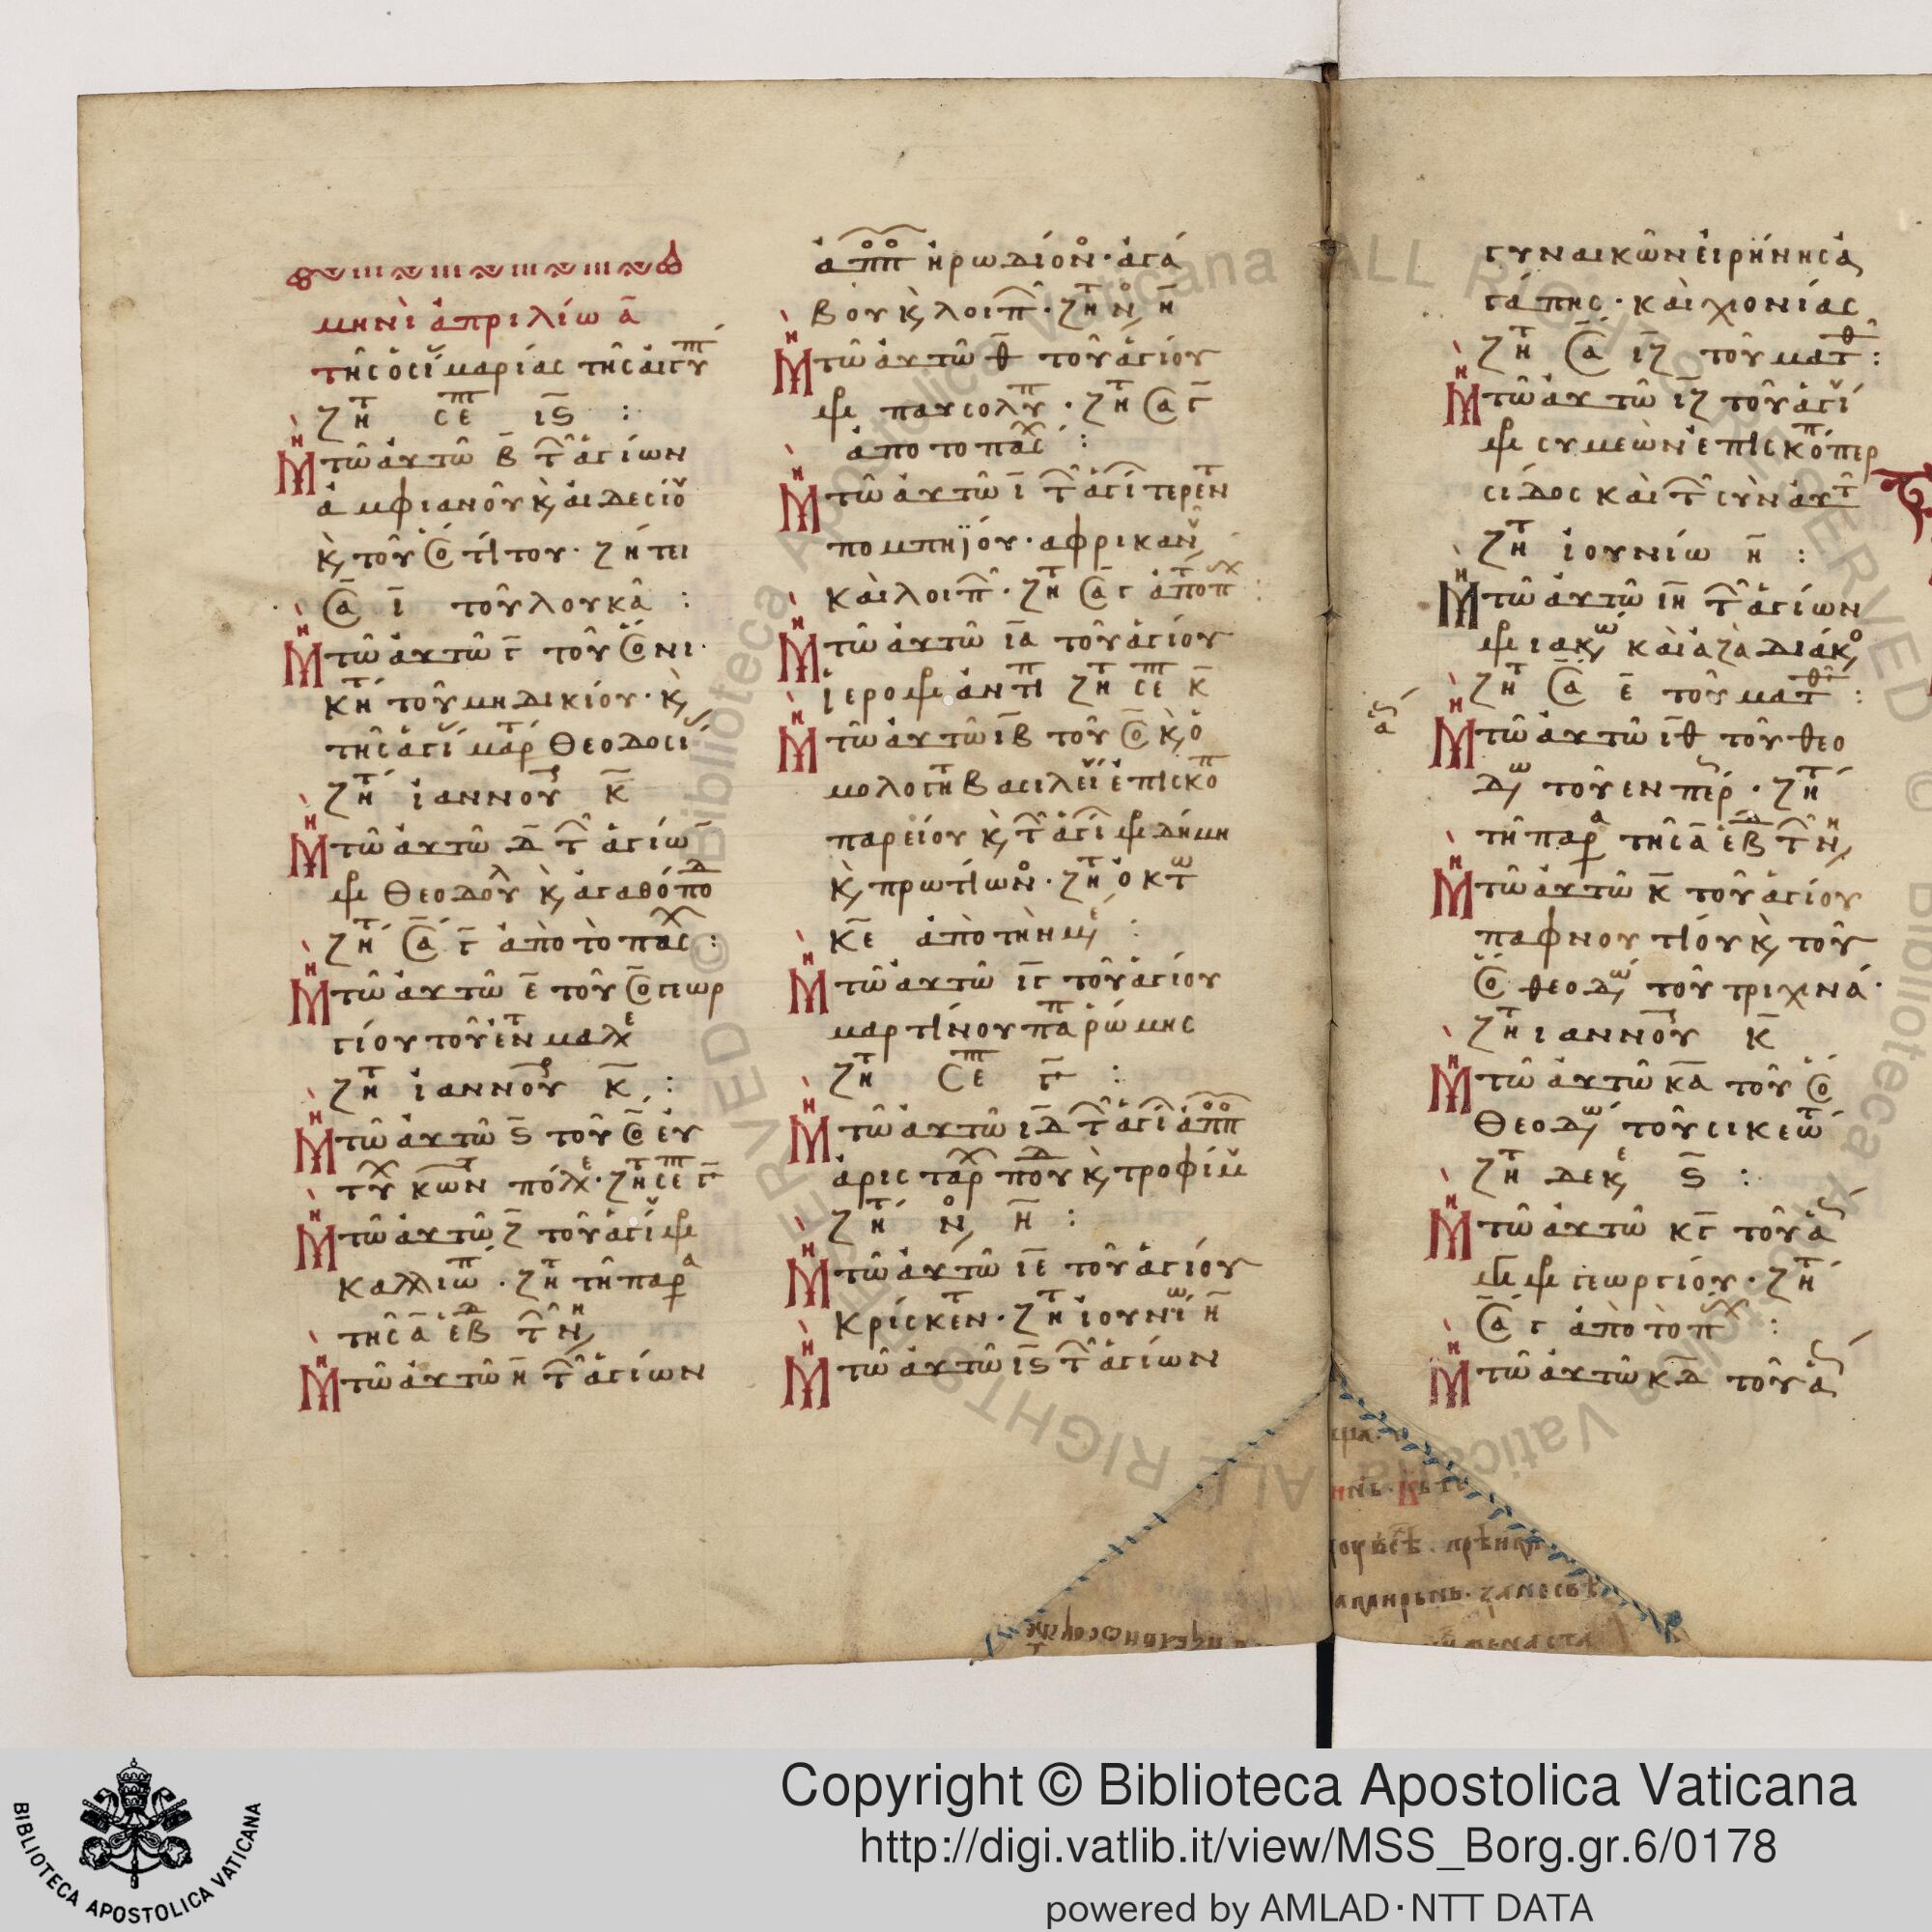 μηνὶ ἀπριλίω α̅
τῆς ὁσί μαρίας τῆς αἰγυπ
ζητ σεπ ις :
Μη τῶ αὐτῶ β τ ἁγίων
ἀμφιανοῦ κ, αἰδεσίου
κ, τοῦ ὁ τίτου · ζήτει
Σα ι τοῦ λουκᾶ :
Μη τῶ αὐτῶ γ τοῦ ὁ νι
κητ τοῦ μηδικίου · κ,
τῆς ἁγί μάρτ θεοδοσί
ζητ ἰαννου κ
Μη τῶ αὐτῶ δ τ ἁγίω
μρ θεοδούλ κ, ἀγαθόποδ
ζητ Σα γ ἀπὸ τὸ πάσχ :
Μη τῶ αὐτῶ ε τοῦ ὁ γεωρ
γίου τοῦ ἐν μαλε
ζητ ἰαννου κ :
Μη τῶ αὐτῶ ς τοῦ ὁ εὐ
τυχ κων πόλε · ζητ σεπ γ
Μη τῶ αὐτῶ ζ τοῦ ἁγί μρ
καλλιωπ · ζητ τῆ παρα
τῆς α ἑβδ τ νη
Μη τῶ αὐτῶ η τ ἁγίων
ἀποπο ἡρωδίονο · ἀγά
βου κ, λοιπ · ζητ νο η
Μη τῶ αὐτῶ θ τοῦ ἁγίου
μρ παυσολυπ · ζητ Σα γ
ἀπο το πάσχ :
Μη τῶ αὐτῶ ι τ ἁγί τερεντ
πομπηΐου · ἀφρικαν
καὶ λοιπ · ζητ Σα γ ἀπτο π
Μη τῶ αὐτῶ ια τοῦ ἁγίου
ἱερομρ ἀντιπ ζητ σεπ κ
Μη τῶ αὐτῶ ιβ τοῦ ὁ κ, ὁ
μολογητ βασιλεί ἐπισκοπ
παρείου κ, τ ἁγί μρ δήμη
κ, πρωτίωνο · ζητ ὀκτω
κε ἀπὸ τὴν με :
Μη τῶ αὐτῶ ιγ τοῦ ἁγίου
μαρτίνου παπ ῥώμης
ζητ Σεπ γ :
Μη τῶ αὐτῶ ιδ τ ἁγί ἀποπο
ἀρισταρχ πουδ κ, τροφίμ
ζητ νο η :
Μη τῶ αὐτῶ ιε τοῦ ἁγίου
κρίσκεντ · ζητ ἰουνίω η
Μη τῶ αὐτῶ ις τ ἁγίων
γυναικῶν εἰρήνης ἀ
γάπης · καὶ χιονίας
ζητ Σα ιζ τοῦ ματθ :
Μη τῶ αὐτῶ ιζ τοῦ ἁγί
μρ συμεὼν ἐπισκοπ περ
σίδος καὶ τ σὺν αὐτ
ζητ ἰουνίω η :
Μη τῶ αὐτῶ ιη τ ἁγίων
μρ ιακω καὶ ἀζὰ διάκο
ζητ Σα ε τοῦ ματθ :
Μη τῶ αὐτῶ ιθ τοῦ θεο
δω τοῦ εν περ · ζητ
τῆ παρα τῆς α ἑβδ τ νη
Μη τῶ αὐτῶ κ τοῦ ἁγίου
παφνουτίου κ, τοῦ
ὁ θεοδω τοῦ τριχινά ·
ζητ ιαννου κ
Μη τῶ αὐτῶ κα τοῦ ὁ
θεοδω τοῦ σικεωτ
ζητ δεκε ς :
Μη τῶ αὐτῶ κγ τοῦ ἁ
μγ μρ γεωργίου · ζητ
Σα γ ἀπὸ τὸ πχ :
Μη τῶ αὐτῶ κδ τοῦ ἁ
Copyright © Biblioteca Apostolica Vaticana
http://digi.vatlib.it/view/MSS_Borg.gr.6/0178
powered by AMLAD·NTT DATA
BIBLIOTECA APOSTOLICA VATICANA